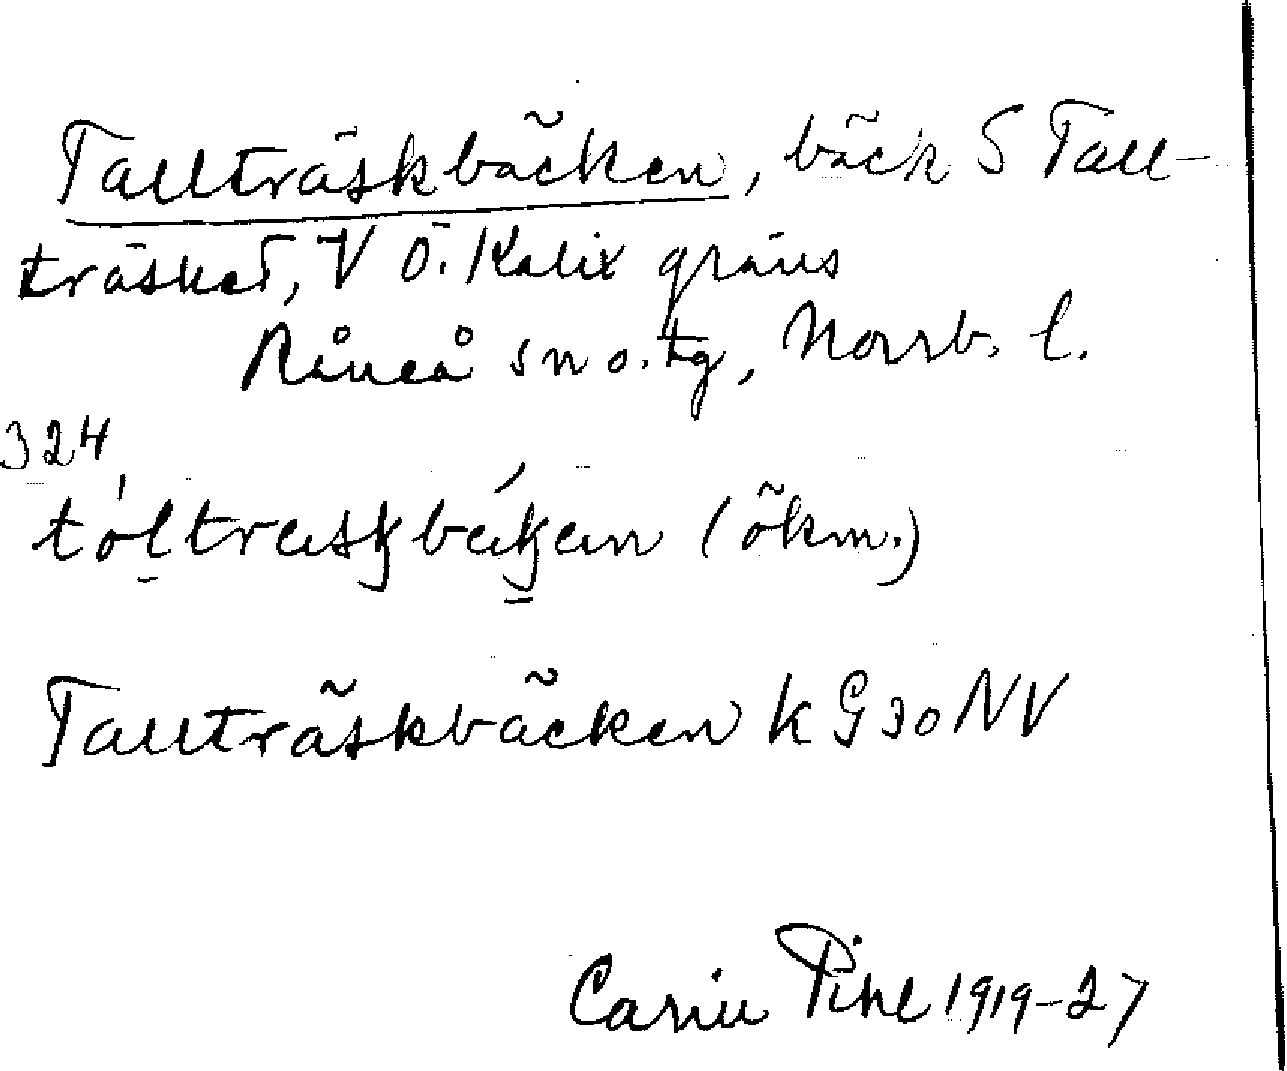 Tallträskbäcken, bäck S Tall-
träsket, V Ö. Kalix gräns
Råneå sn o. tg, Norrb. l.
324
tóltræskbækæn (ökm.)
Tallträskbäcken k G 30 NV
Carin Pihl 1919-27